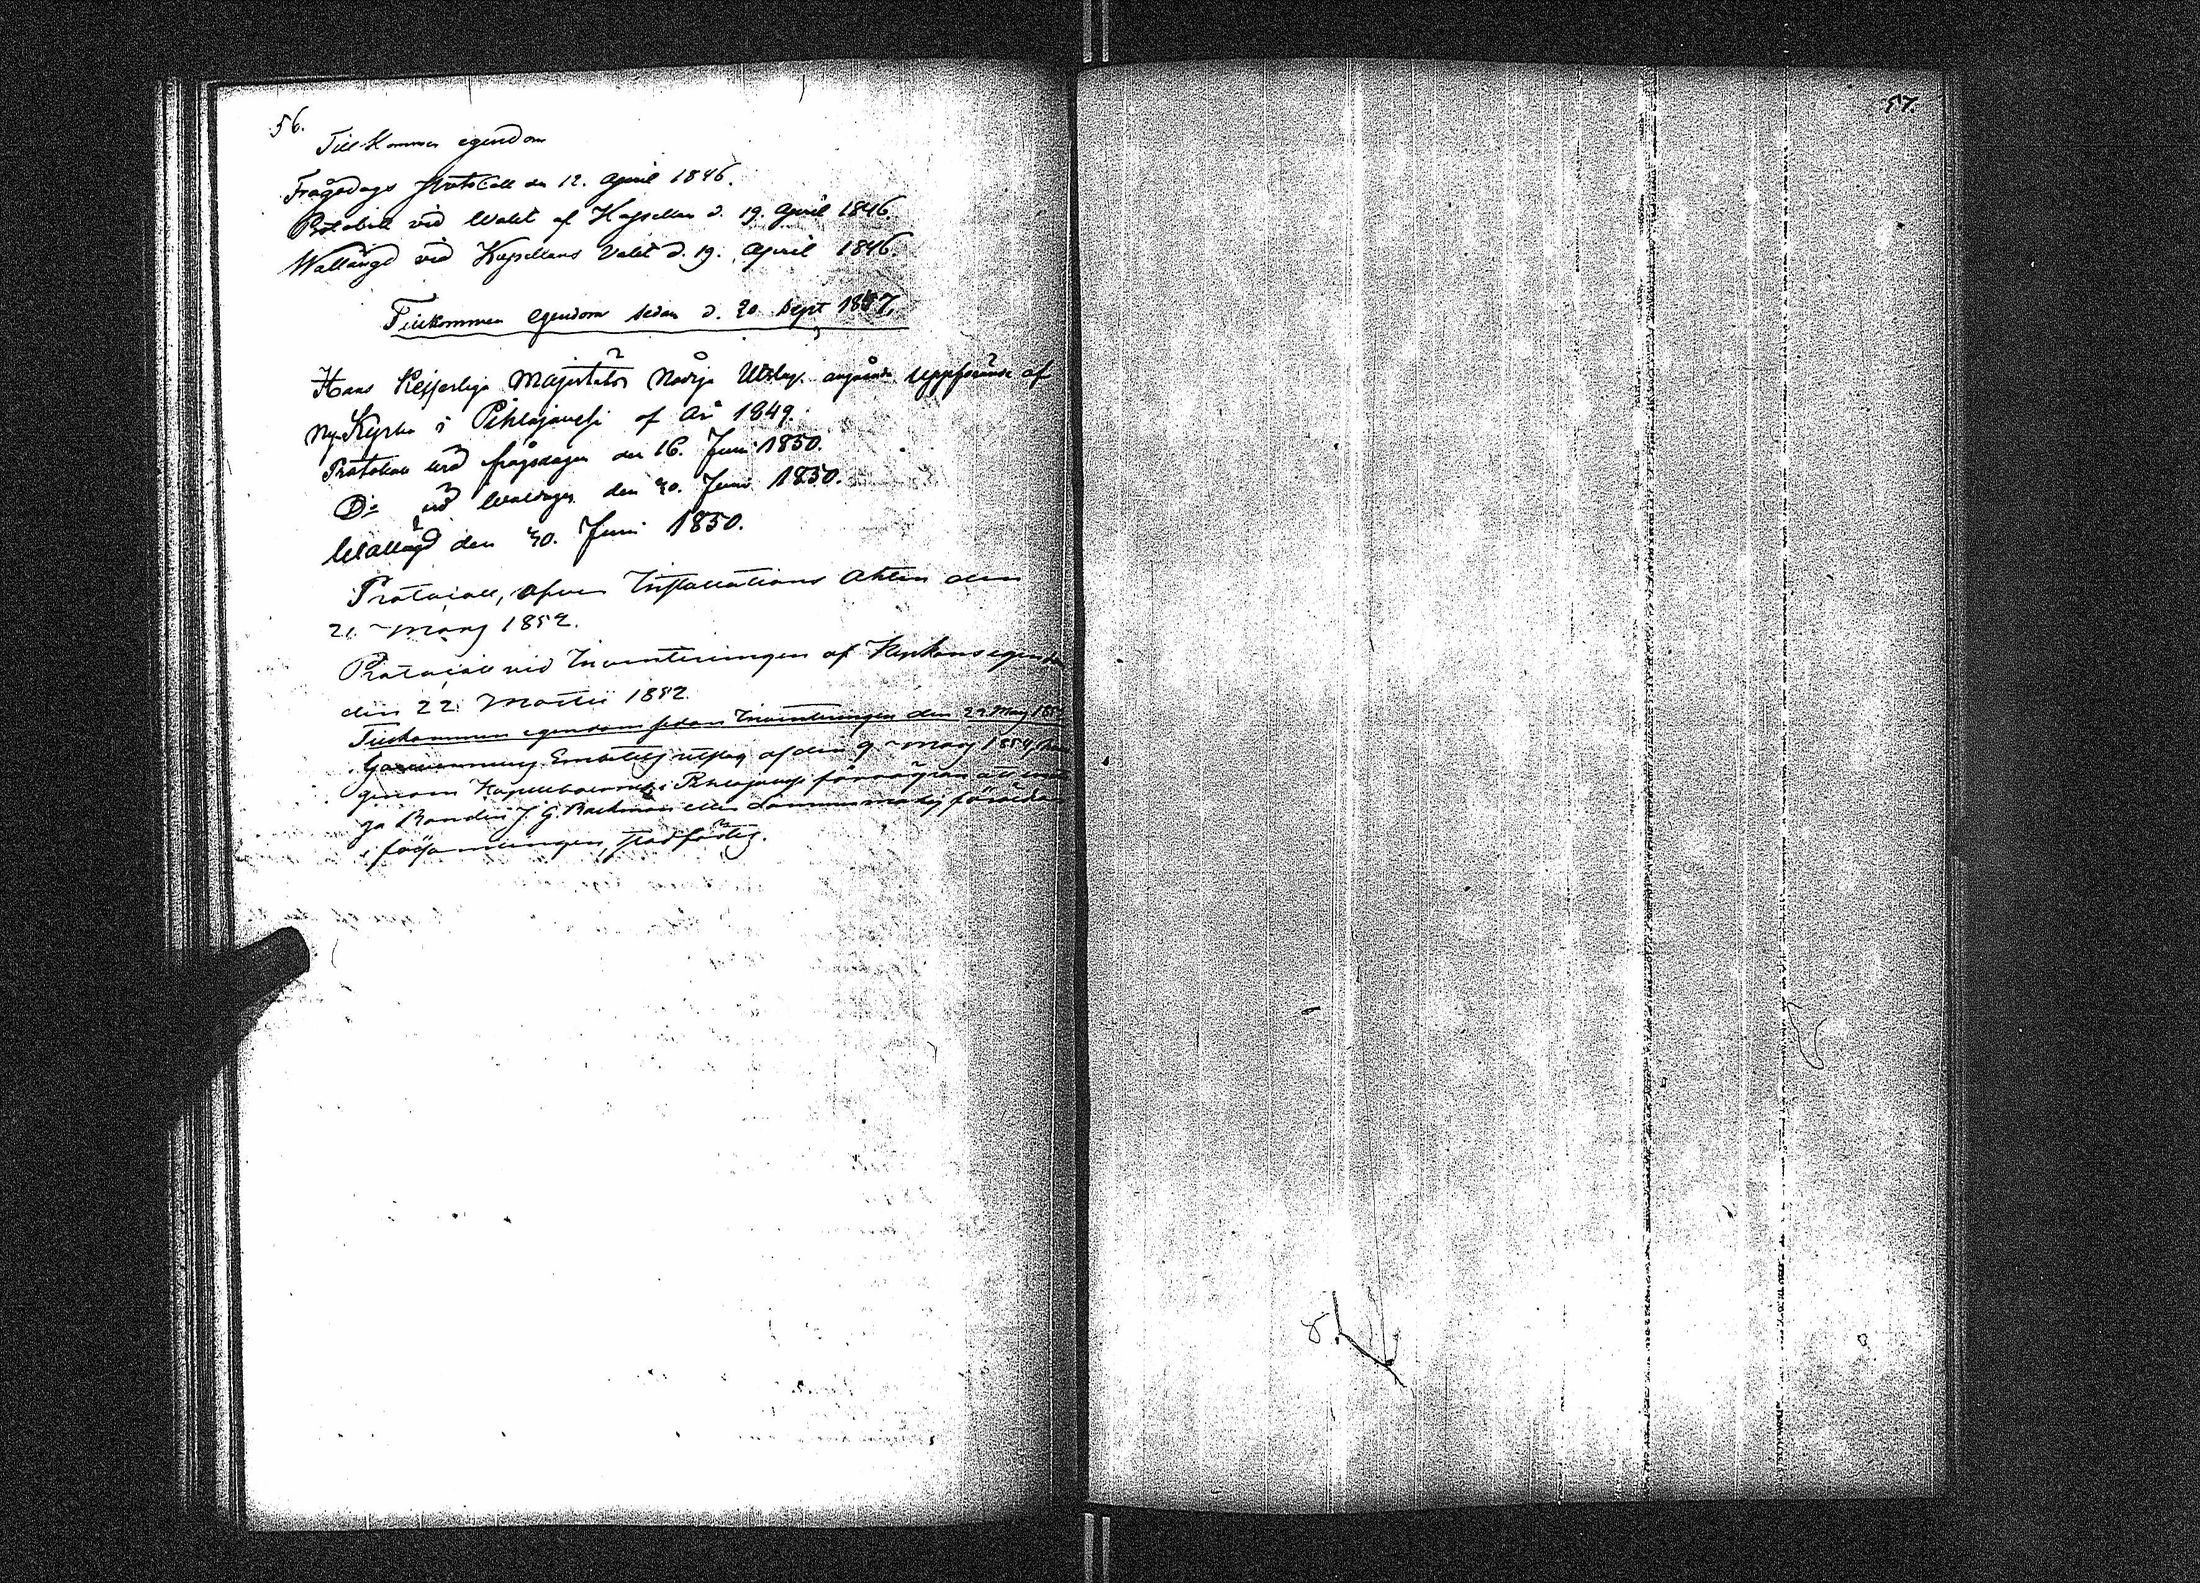 56.
Till kommen egendom
Frågedags Protokoll den 12. April 1846.
Protokoll vid Walet af Kapellan d. 19. April 1846.
Wallängd vid Kapellans Valet d. 19. April 1846.
Tillkommen egendom sedan d. 20 Sept 1847.
Hans Kejserliga Majestäts Nådiga Utslag angående uppförande af
Ny Kyrka i Pihlajavesi af År 1849.
Protokoll vid frågedagen den 16. Juni 1850.
D:o vid Waldagen den 30. Juni 1850.
Wallängd den 30. Juni 1850.
Protocoll, öfver Installations Akten den
21 Mars 1852.
Protocoll vid Inventeringen af Kyrkans egendom
den 22 Martii 1852.
Tillkommen egendom sedan Inventeringen den 22 Mars 185
Embetets utslag af den 9 Mars 1854,
genom Kapellboerne i Pihlajavesi att
ga Bonden J. G. Backman eller
i församlingen, stadfästes.
57.